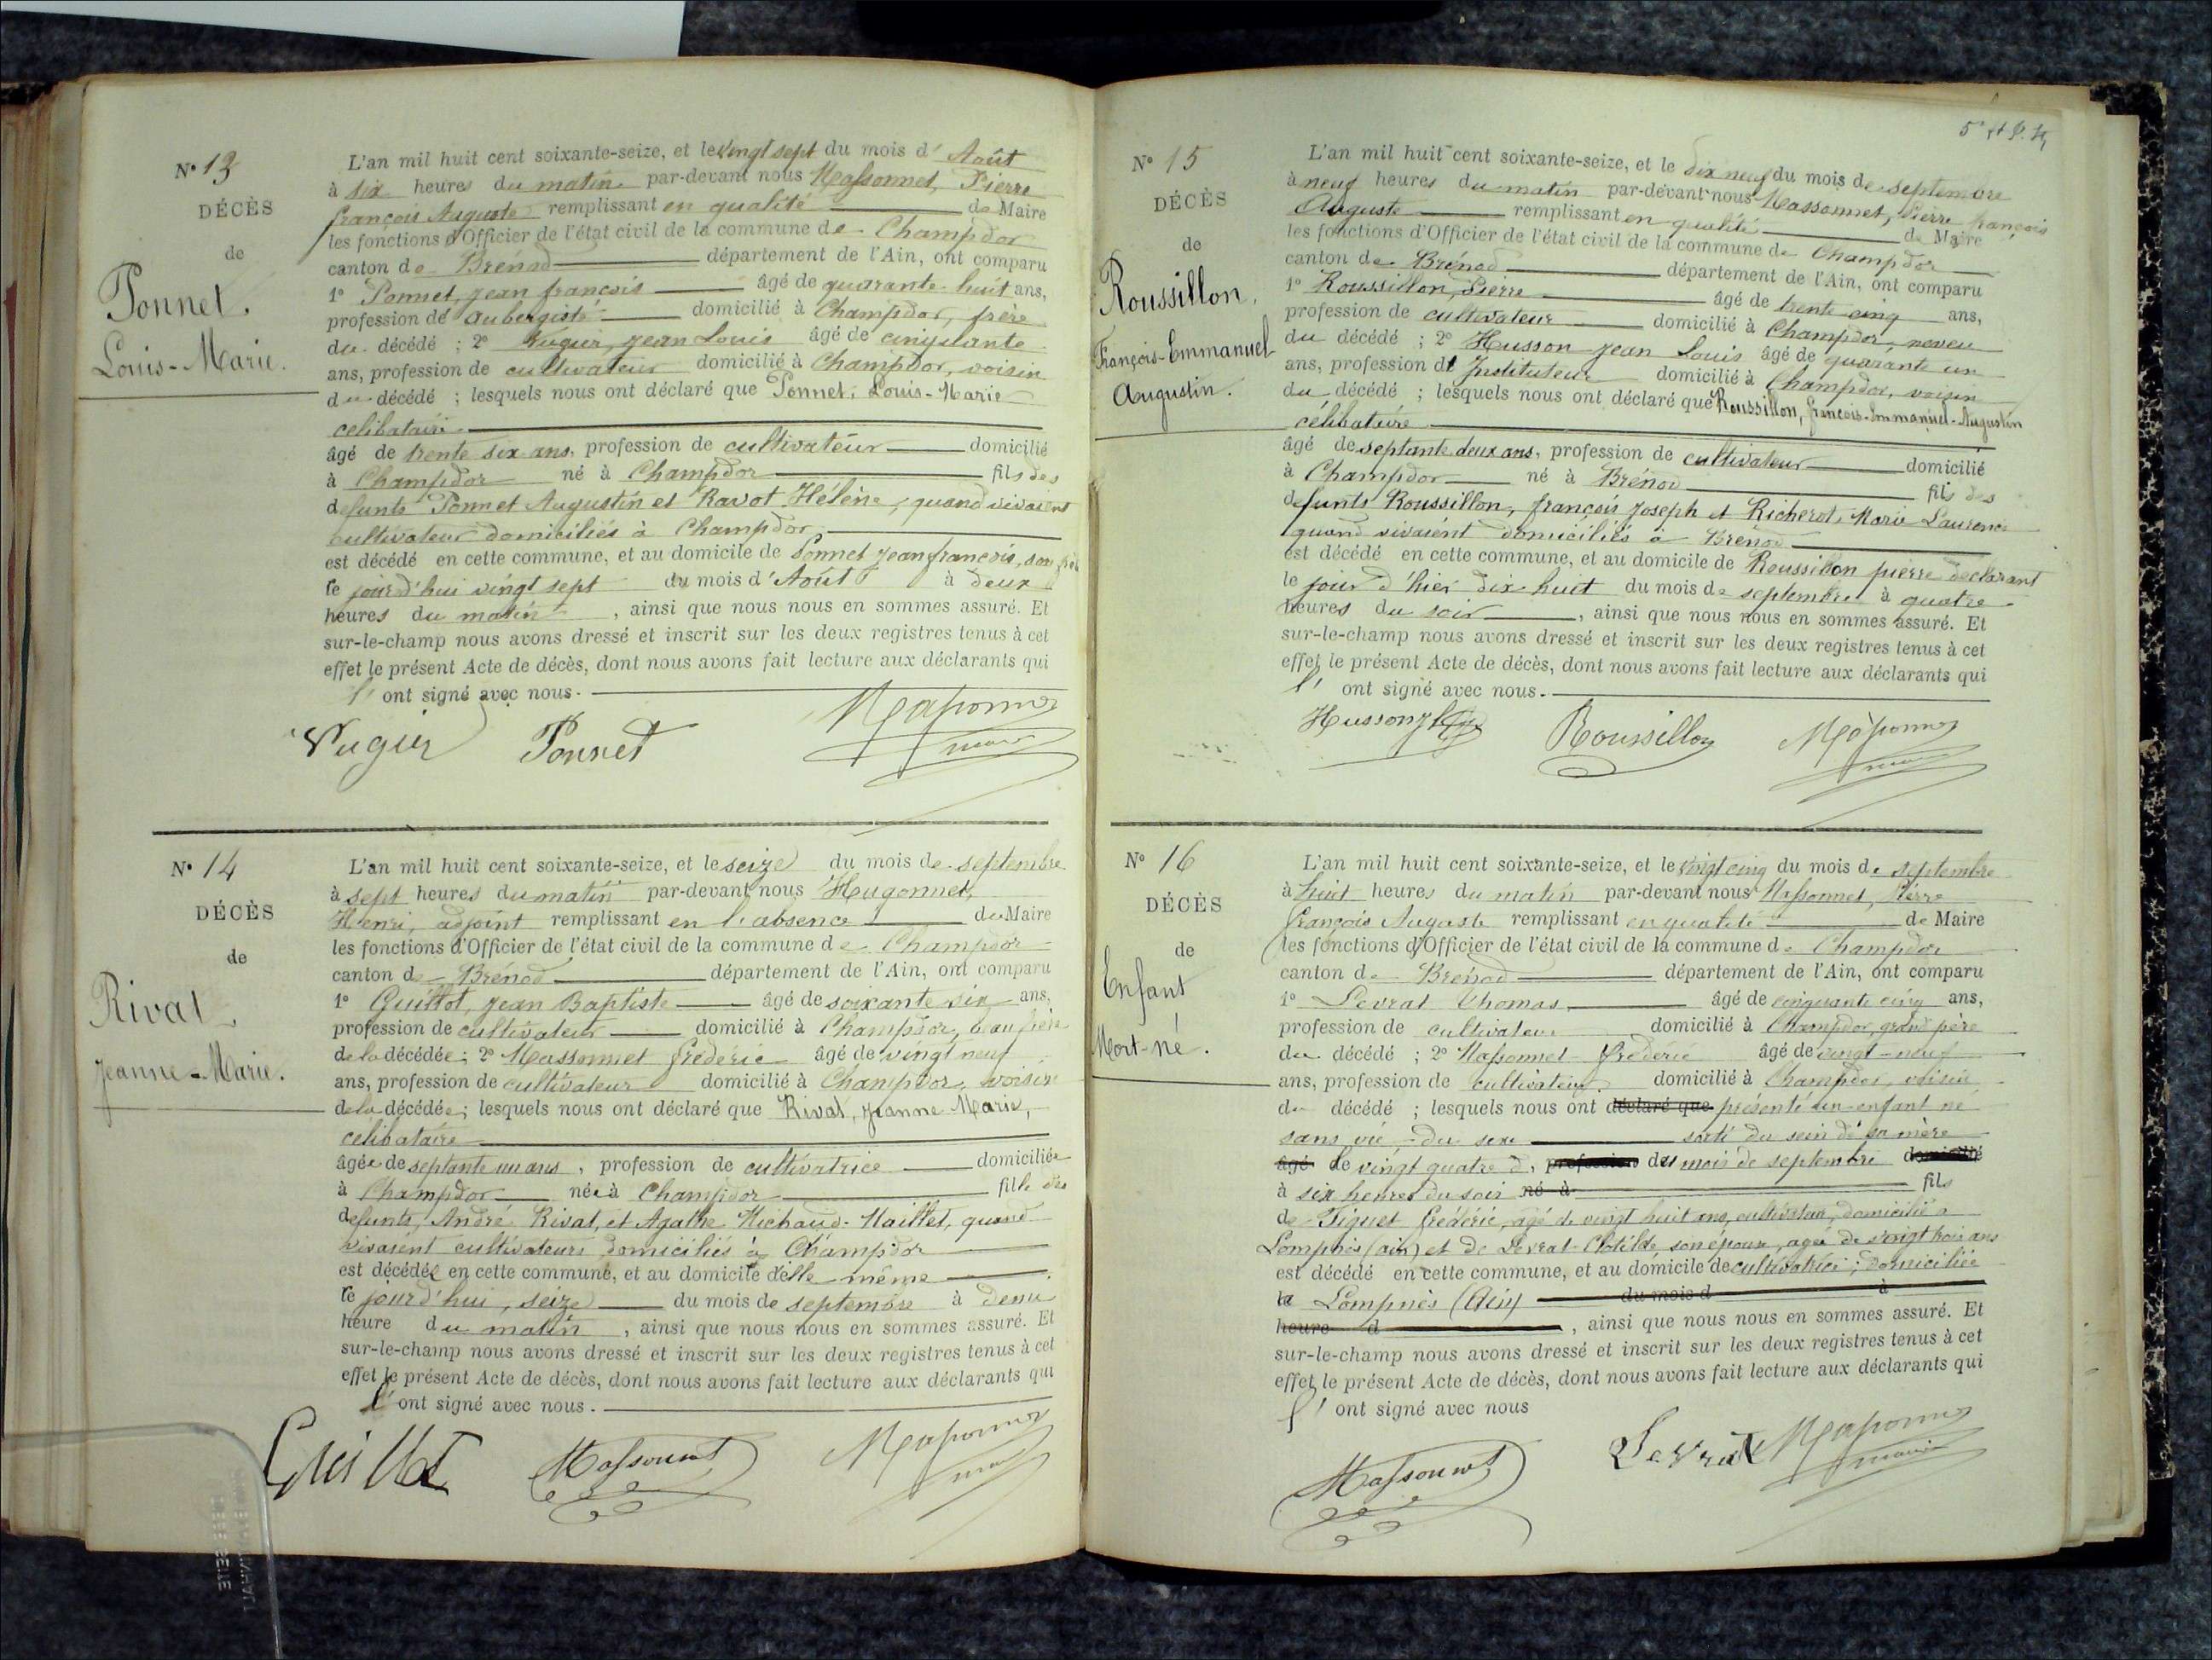 N° 13
DÉCÈS
de
Ponnet.
Louis-Marie.
L'an mil huit cent soixante-seize, et le vingt sept du mois d'Août
à six heures du matin par-devant nous Massonnet, Pierre
françois Auguste remplissant en qualité de Maire
les fonctions d'Officier de l'état civil de la commune de Champdor
canton de Brénod département de l'Ain, ont comparu
1° Ponnet, jean françois âgé de quarante huit ans,
profession de aubergiste domicilié à Champdor, frère
du décédé ; 2° Vugier, jean Louis âgé de cinquante
ans, profession de cultivateur domicilié à Champdor, voisin
du décédé ; lesquels nous ont déclaré que Ponnet, Louis-Marie
celibataire
âgé de trente six ans, profession de cultivateur domicilié
à Champdor né à Champdor fils des
defunts Ponnet Augustin et Ravot Hélène, quand vivaient
cultivateur domiciliés à Champdor
est décédé en cette commune, et au domicile de Ponnet jean françois, son frère
le jourd'hui vingt sept du mois d'Août à deux
heures du matin, ainsi que nous nous en sommes assuré. Et
sur-le-champ nous avons dressé et inscrit sur les deux registres tenus à cet
effet le présent Acte de décès, dont nous avons fait lecture aux déclarants qui
l'ont signé avec nous.
Vugier Ponnet Massonnet
maire
N° 14
DÉCÈS
de
Rival
Jeanne-Marie.
L'an mil huit cent soixante-seize, et le seize du mois de septembre
à sept heures du matin par-devant nous Hugonnet,
Henri, adjoint remplissant en l'absence du Maire
les fonctions d'Officier de l'état civil de la commune de Champdor
canton de Brénod département de l'Ain, ont comparu
1° Guillot, jean Baptiste âgé de soixante six ans,
profession de cultivateur domicilié à Champdor, beau frère
de la décédée ; 2° Massonnet frédéric âgé de vingt neuf
ans, profession de cultivateur domicilié à Champdor, voisin
de la décédée ; lesquels nous ont déclaré que Rival, jeanne Marie,
celibataire
âgée de septante un ans, profession de cultivatrice domiciliée
à Champdor née à Champdor fille des
defunts, André Rival, et Agathe Michaud-Maillet, quand
vivaient cultivateurs domiciliés à Champdor
est décédée en cette commune, et au domicile d'elle même
le jourd'hui, seize du mois de septembre à demi
heure du matin, ainsi que nous nous en sommes assuré. Et
sur-le-champ nous avons dressé et inscrit sur les deux registres tenus à cet
effet le présent Acte de décès, dont nous avons fait lecture aux déclarants qui
l'ont signé avec nous.
Guillot Massonnet Massonnet
maire
N° 15
DÉCÈS
de
Roussillon,
François-Emmanuel
Augustin.
L'an mil huit cent soixante-seize, et le dix neuf du mois de septembre
à neuf heures du matin par-devant nous Massonnet, Pierre françois
Auguste remplissant en qualité de Maire
les fonctions d'Officier de l'état civil de la commune de Champdor
canton de Brénod département de l'Ain, ont comparu
1° Roussillon, Pierre âgé de trente cinq ans,
profession de cultivateur domicilié à Champdor, neveu
du décédé ; 2° Husson jean Louis âgé de quarante un
ans, profession de Instituteur domicilié à Champdor, voisin
du décédé ; lesquels nous ont déclaré que Roussillon, françois-Emmanuel-Augustin
célibataire
âgé de septante deux ans, profession de cultivateur domicilié
à Champdor né à Brénod fils des
defunts Roussillon, françois Joseph et Richerot, Marie Laurence
quand vivaient domiciliés à Brénod
est décédé en cette commune, et au domicile de Roussillon pierre declarant
le jour d'hier dix huit du mois de septembre à quatre
heures du soir, ainsi que nous nous en sommes assuré. Et
sur-le-champ nous avons dressé et inscrit sur les deux registres tenus à cet
effet le présent Acte de décès, dont nous avons fait lecture aux déclarants qui
l'ont signé avec nous.
Husson Roussillon Massonnet
maire
N° 16
DÉCÈS
de
Enfant
Mort-né.
L'an mil huit cent soixante-seize, et le vingt cinq du mois de septembre
à huit heures du matin par-devant nous Massonnet, Pierre
françois Auguste remplissant en qualité de Maire
les fonctions d'Officier de l'état civil de la commune de Champdor
canton de Brénod département de l'Ain, ont comparu
1° Levrat Thomas âgé de cinquante cinq ans,
profession de cultivateur domicilié à Champdor, grand père
du décédé ; 2° Massonnet frédéric âgé de vingt-neuf
ans, profession de cultivateur domicilié à Champdor, voisin
du décédé ; lesquels nous ont déclaré que présenté un enfant né
sans vie du sexe sorti du sein de sa mère
âgé le vingt quatre d, profession du mois de septembre domicilié
à six heures du soir né à fils
de Tiquet frédéric, agé de vingt huit ans, cultivateur, domicilié à
Lompnès (ain) et de Levrat Clotilde, son épouse, agée de vingt trois ans
est décédé en cette commune, et au domicile de cultivatrice ; domiciliée
à Lompnès (Ain) du mois d à
heure d, ainsi que nous nous en sommes assuré. Et
sur-le-champ nous avons dressé et inscrit sur les deux registres tenus à cet
effet le présent Acte de décès, dont nous avons fait lecture aux déclarants qui
l'ont signé avec nous
Massonnet Levrat Massonnet
maire